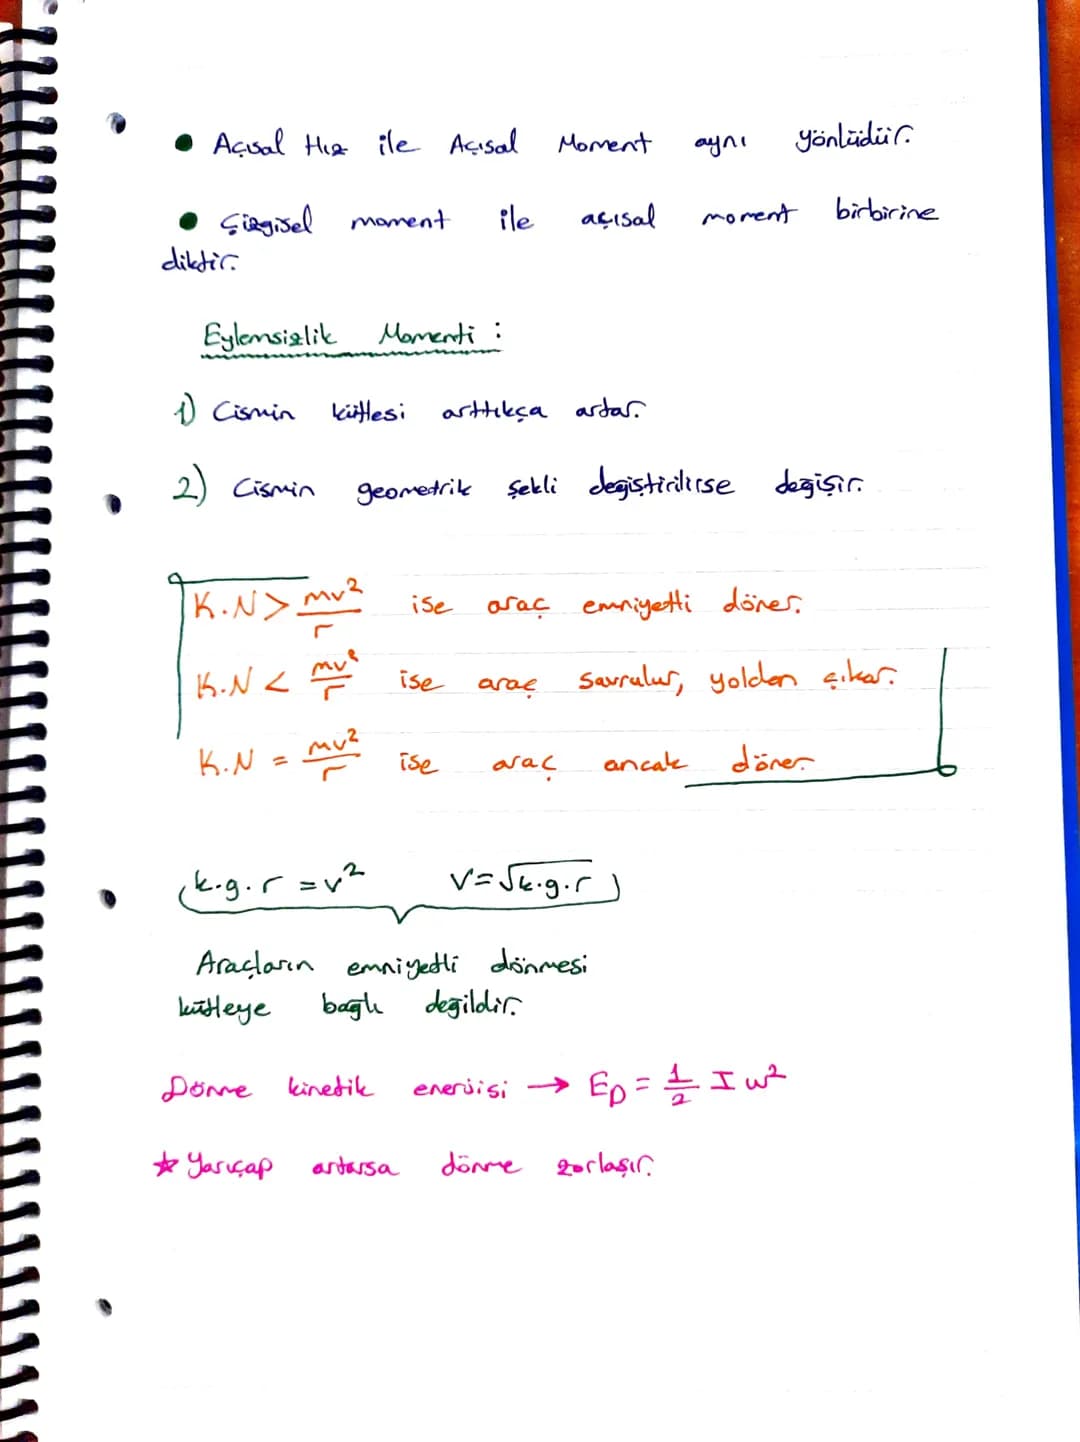 ● Açısal Hız ile Açısal Moment aynı yönlüdür.
● Çizgisel moment ile açısal moment birbirine
diktir.
Eylemsizlik Momenti :
1) Cismin kütlesi arttıkça artar.
2) Cismin geometrik şekli değiştirilirse değişir.
K.N > mv²/r ise araç emniyetli döner.
K.N < mv²/r ise araç savrulur, yoldan çıkar.
K.N = mv²/r ise araç ancak döner.
k.g.r = v² V=√k.g.r
Araçların emniyetli dönmesi
kütleye bağlı değildir.
Dönme kinetik enerjisi → E_D = 1/2 I w²
☆ Yarıçap artarsa dönme zorlaşır.